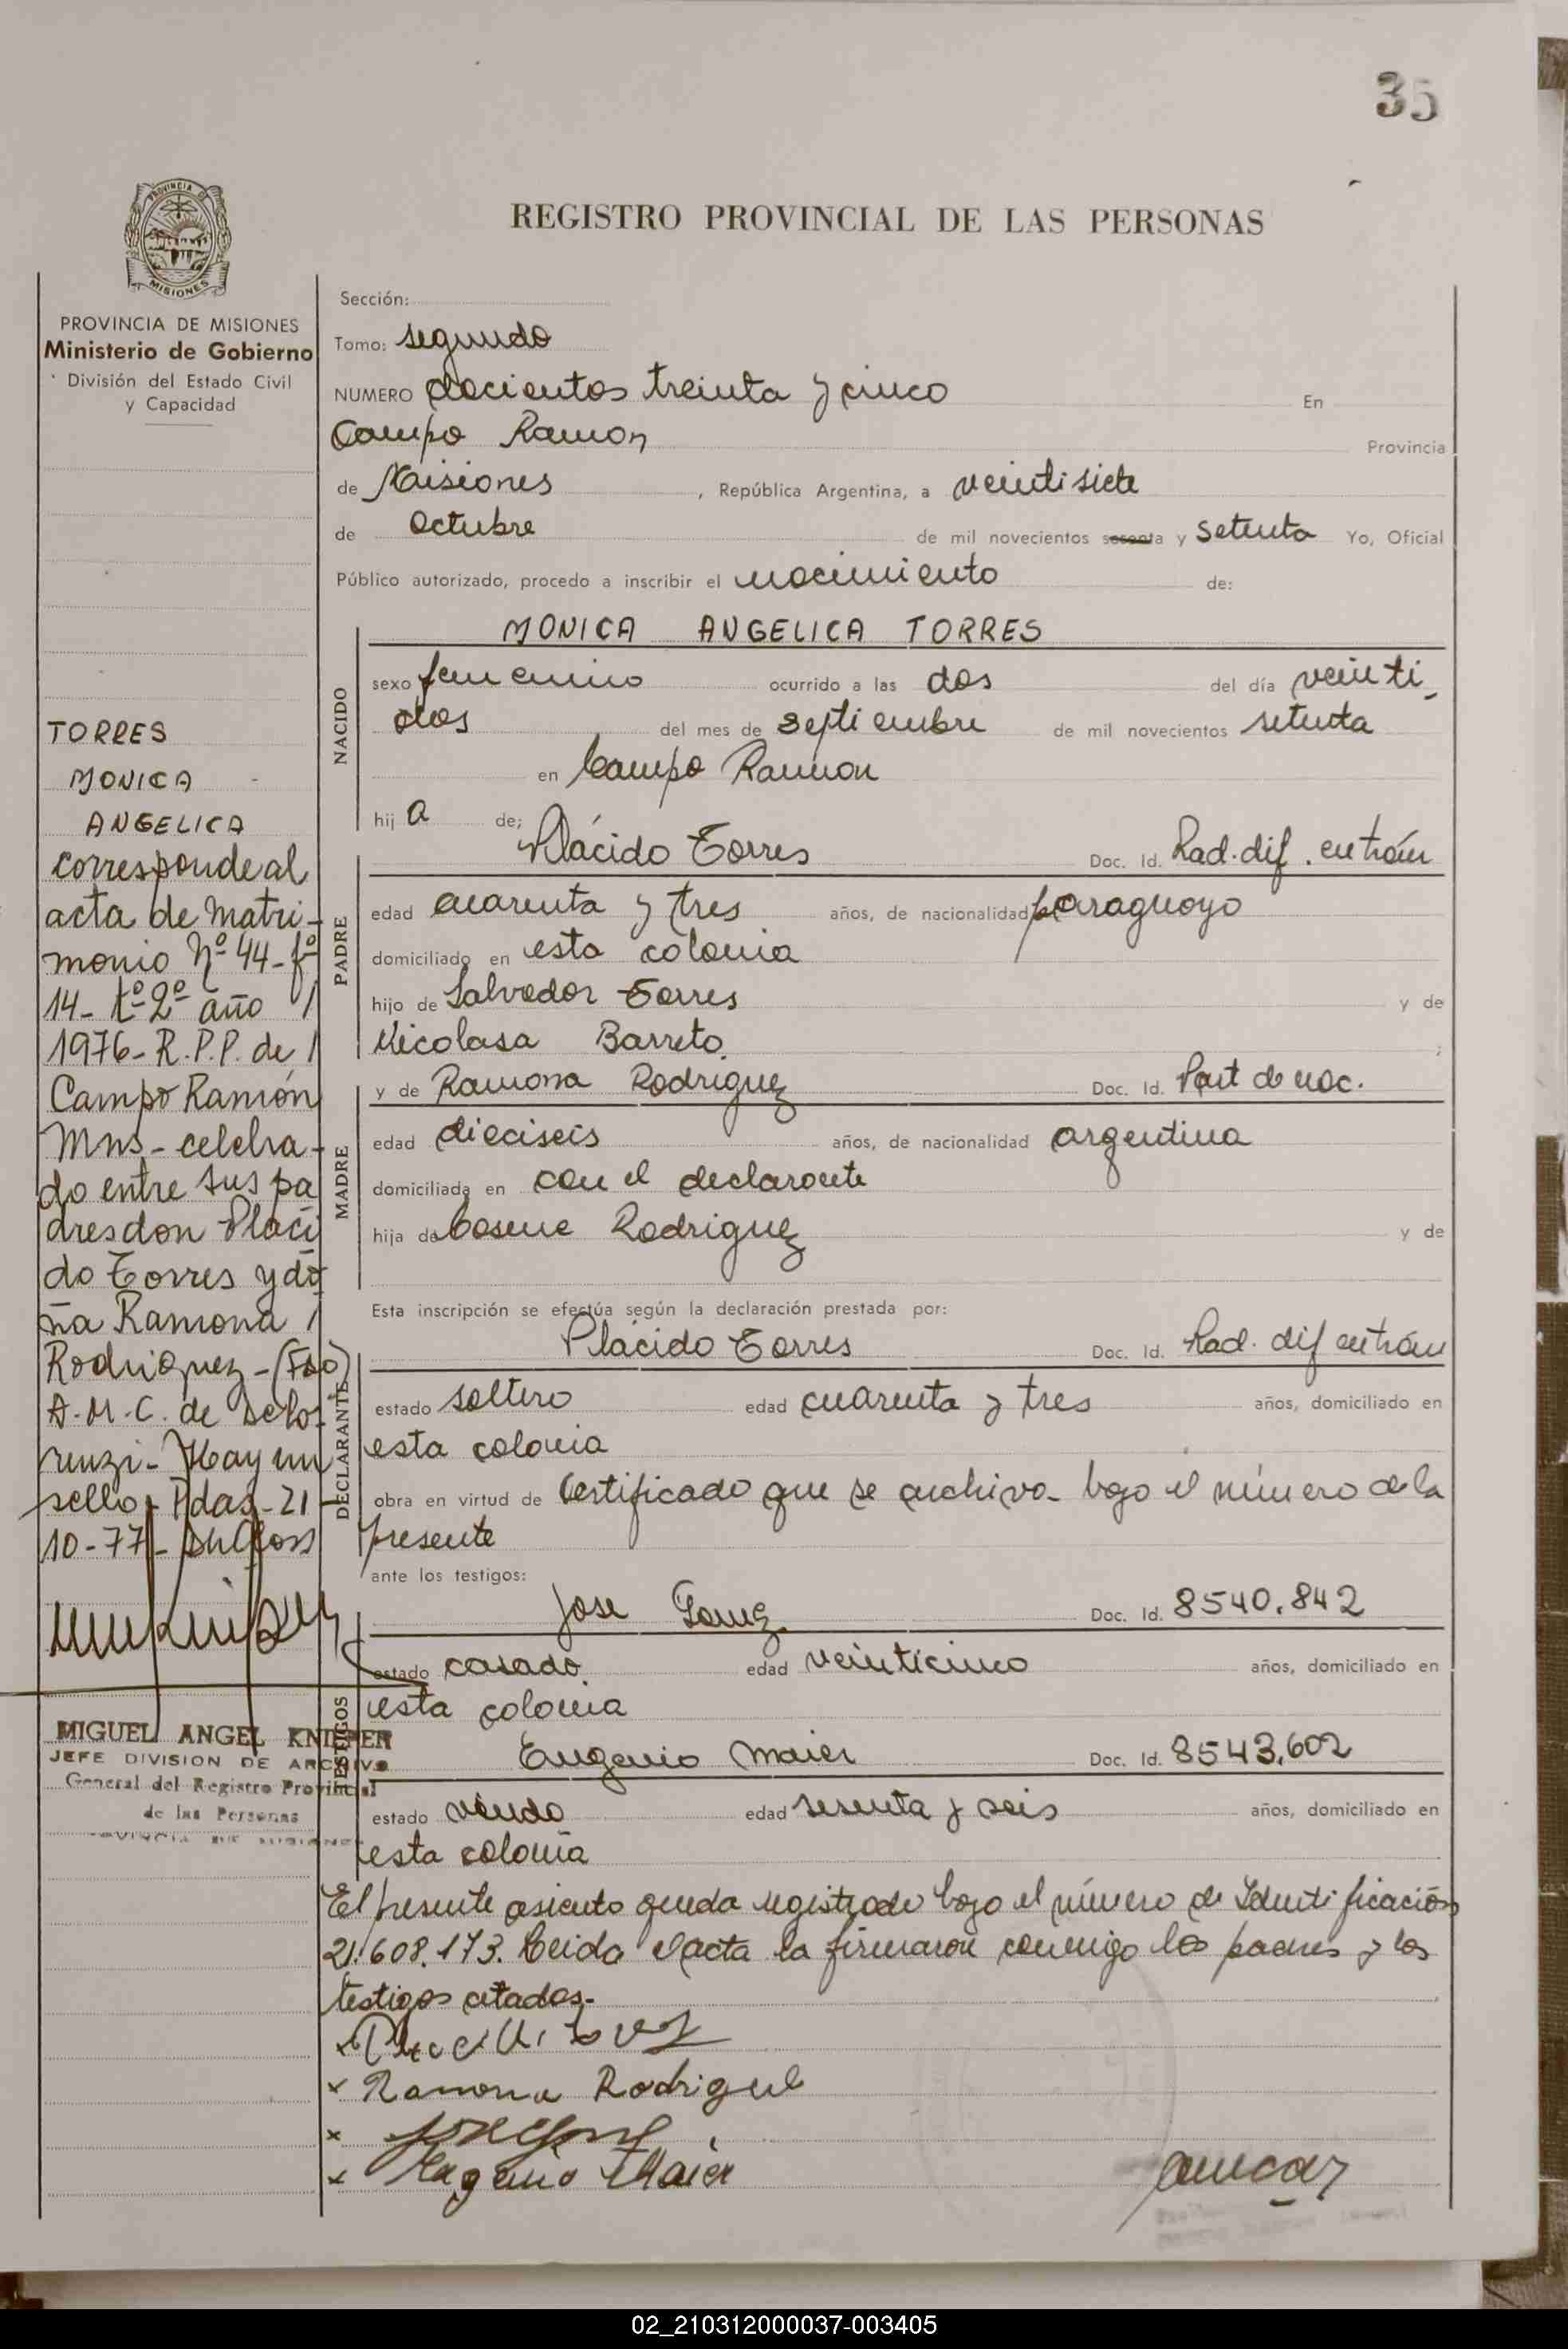 35
REGISTRO PROVINCIAL DE LAS PERSONAS
PROVINCIA DE
MISIONES
PROVINCIA DE MISIONES
Ministerio de Gobierno
División del Estado Civil
y Capacidad
TORRES
MONICA
ANGELICA
corresponde al
acta de matri-
monio Nº 44- fº
14- tº 2º año /
1976- R.P.P. de /
Campo Ramón
Mns - celebra-
do entre sus pa
dres don Pláci
do Torres y do
ña Ramona /
Rodriguez - (Fdo)
A.M.C. de Delo-
renzi - Hay un
sello - Pdas - 21
10-77 -
MIGUEL ANGEL KNIPPER
JEFE DIVISION DE ARCHIVO
General del Registro Provincial
de las Personas
PROVINCIA DE MISIONES
Sección:
Tomo: segundo
NUMERO docientos treinta y cinco En
Campo Ramon Provincia
de Misiones , República Argentina, a veintisiete
de Octubre de mil novecientos sesenta y setenta Yo, Oficial
Público autorizado, procedo a inscribir el nacimiento de:
MONICA ANGELICA TORRES
NACIDO
sexo femenino ocurrido a las dos del día veinti-
dos del mes de septiembre de mil novecientos setenta
en Campo Ramon
hij a de;
PADRE
Plácido Torres Doc. Id. Rad. dif. en trám
edad cuarenta y tres años, de nacionalidad paraguayo
domiciliado en esta colonia
hijo de Salvador Torres y de
Nicolasa Barreto. ;
MADRE
y de Ramona Rodriguez Doc. Id. Part de nac.
edad dieciseis años, de nacionalidad argentina
domiciliada en con el declarante
hija de Cosme Rodriguez y de
Esta inscripción se efectúa según la declaración prestada por:
DECLARANTE
Plácido Torres Doc. Id. Rad. dif en trám
estado soltero edad cuarenta y tres años, domiciliado en
esta colonia
obra en virtud de Certificado que se archiva bajo el número de la
presente
ante los testigos:
TESTIGOS
Jose Gomez Doc. Id. 8540.842
estado casado edad veinticinco años, domiciliado en
esta colonia
Eugenio Maier Doc. Id. 8543.602
estado viudo edad sesenta y seis años, domiciliado en
esta colonia
El presente asiento queda registrado bajo el número de Identificación
21.608.173. Leida el acta la firmaron conmigo los padres y los
testigos citados.-
x
x Ramona Rodriguez
x
x Eugenio Maier
02_210312000037-003405